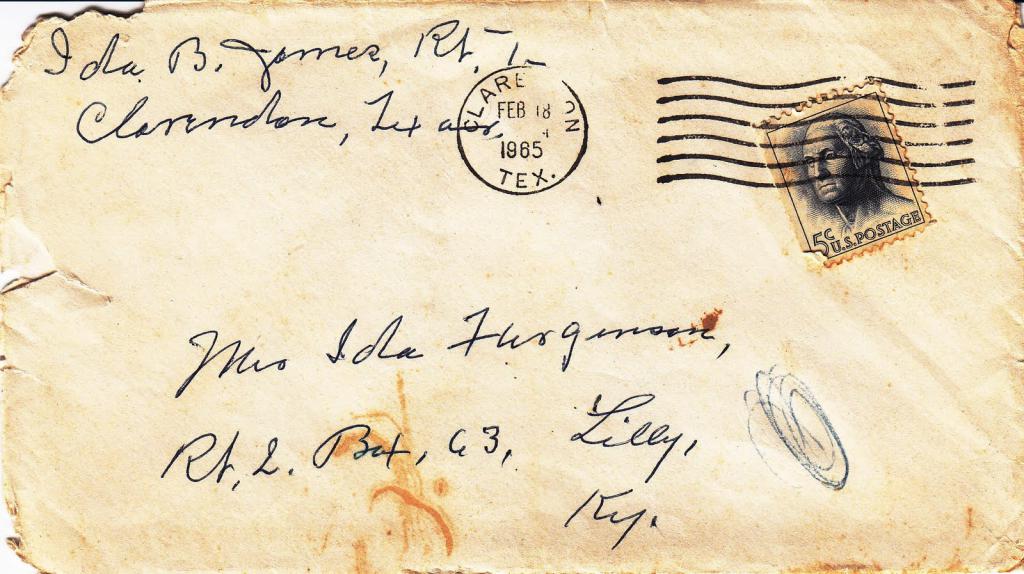 Ida B. James, Rt. 1
Clarendon, Texas
CLARE ON
FEB 18
1965
TEX.
5c U.S. POSTAGE
Mrs Ida Furgerson,
Rt, 2. Box, 63, Lilly,
Ky.